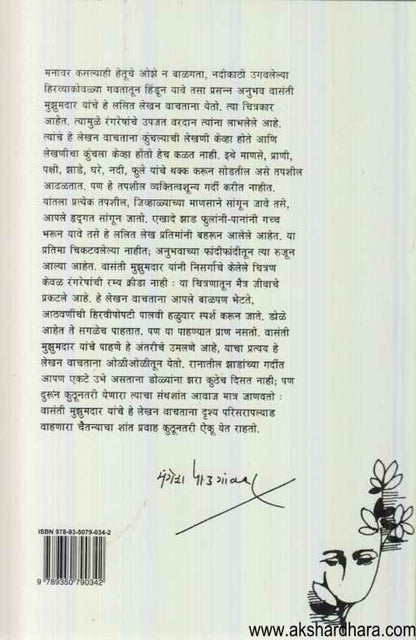 मनावर कसल्याही हेतूचे ओझे न बाळगता, नदीकाठी उगवलेल्या
हिरव्याकोवळ्या गवतातून हिंडून यावे तसा प्रसन्न अनुभव वासंती
मुझुमदार यांचे हे ललित लेखन वाचताना येतो. त्या चित्रकार
आहेत. त्यामुळे रंगरेषांचे उपजत वरदान त्यांना लाभलेले आहे.
त्यांचे हे लेखन वाचताना कुंचल्याची लेखणी केव्हा होते आणि
लेखणीचा कुंचला केव्हा होतो हेच कळत नाही. इथे माणसे, प्राणी,
पक्षी, झाडे, घरे, नदी, फुले यांचे थक्क करून सोडतील असे तपशील
आढळतात. पण हे तपशील व्यक्तित्वशून्य गर्दी करीत नाहीत.
यांतला प्रत्येक तपशील, जिव्हाळ्याच्या माणसाने सांगून जावे तसे,
आपले हृद्गत सांगून जातो. एखादे झाड फुलांनी-पानांनी गच्च
भरून यावे तसे हे ललित लेख प्रतिमांनी बहरून आलेले आहेत. या
प्रतिमा चिकटवलेल्या नाहीत; अनुभवाच्या फांदीफांदीतून त्या रुजून
आल्या आहेत. वासंती मुझुमदार यांनी निसर्गाचे केलेले चित्रण
केवळ रंगरेषांची रम्य क्रीडा नाही : या चित्रणातून मैत्र जीवाचे
प्रकटले आहे. हे लेखन वाचताना आपले बाळपण भेटते,
आठवणींची हिरवीपोपटी पालवी हळुवार स्पर्श करून जाते. डोळे
आहेत ते सगळेच पाहतात. पण या पाहण्यात प्राण नसतो. वासंती
मुझुमदार यांचे पाहणे हे अंतरीचे उमलणे आहे, याचा प्रत्यय हे
लेखन वाचताना ओळीओळीतून येतो. रानातील झाडांच्या गर्दीत
आपण एकटे उभे असताना डोळ्यांना झरा कुठेच दिसत नाही; पण
दुरून कुठूनतरी येणारा त्याचा संथशांत आवाज मात्र जाणवतो :
वासंती मुझुमदार यांचे हे लेखन वाचताना दृश्य परिसरापल्याड
वाहणारा चैतन्याचा शांत प्रवाह कुठूनतरी ऐकू येत राहतो.
मंगेश पाडगांवकर
ISBN 978-93-5079-034-2
9 789350 790342
www.akshardhara.com